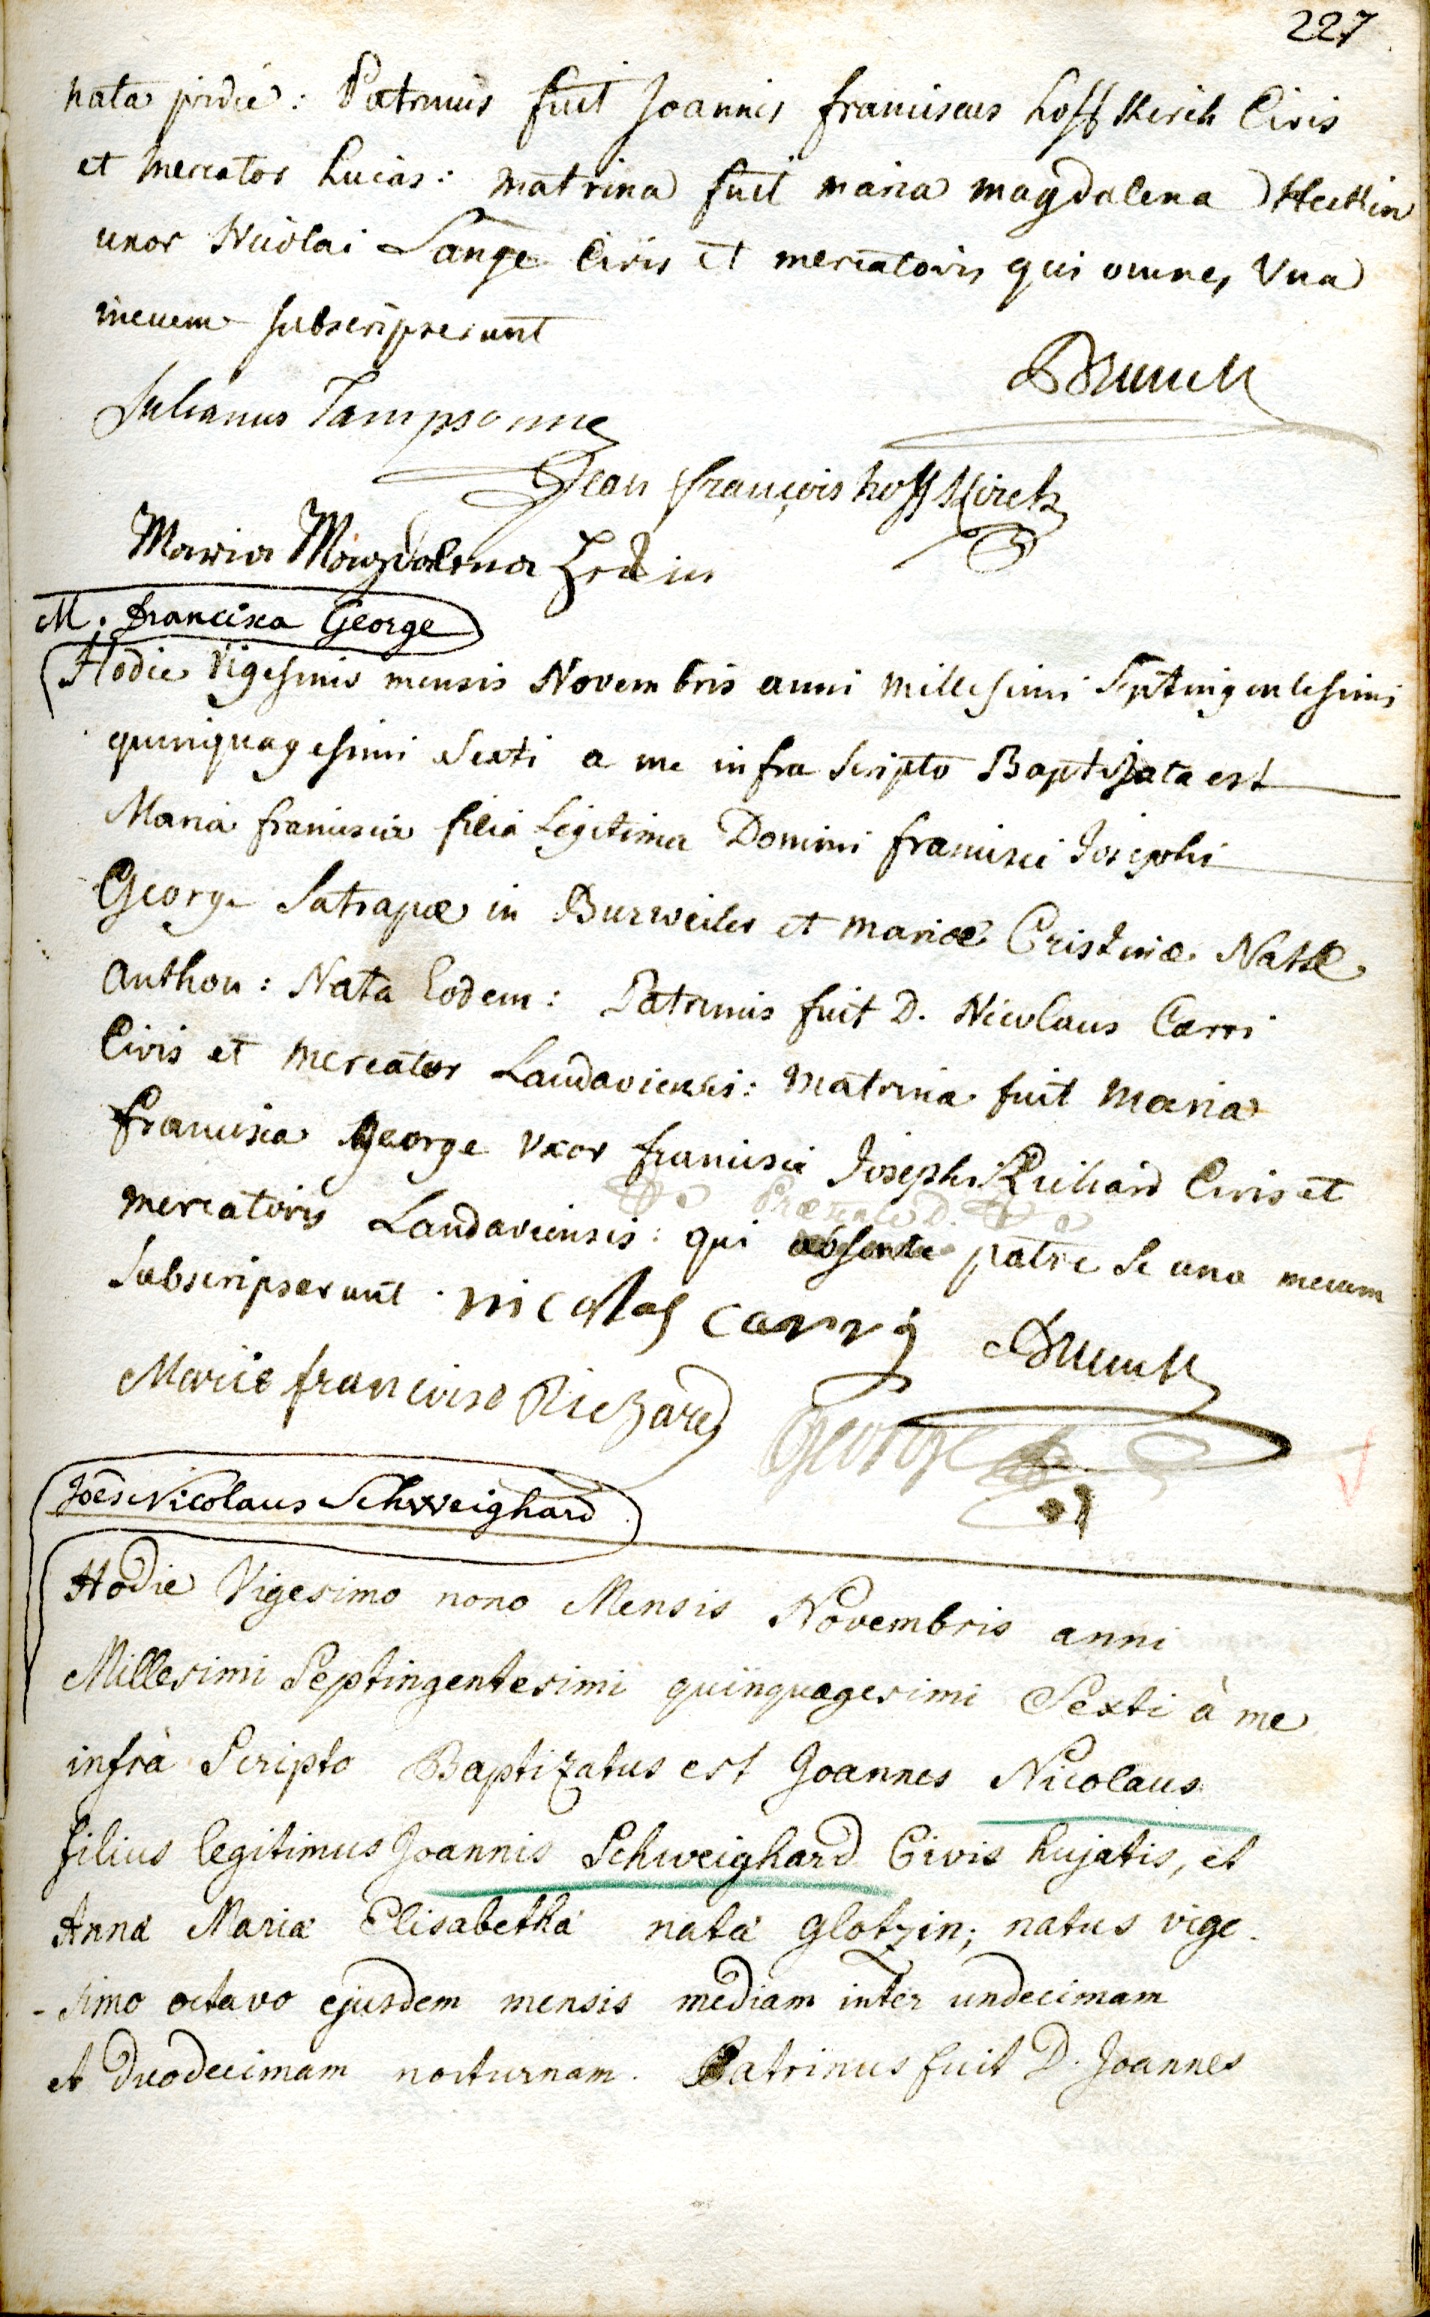 227
nata pridie: Patrinus fuit Joannis franciscus hoffkirch Civis
et mercator hujas: matrina fuit maria magdalena Heckin
uxor Nicolai Lange Civis et mercatoris qui omnes Una
mecum subscripserunt
Brunck
Julianus Tampsonne
Jean françois hoffkirch
Maria Magdalena Hedin
M. francisca George
Hodie Vigesimo mensis Novembris anni millesimi Septingentesimi
quinquagesimi Sexti a me infra scripto Baptizata est
Maria francisca filia Legitima Domini francisci Josephi
George Satrapæ in Burweiler et mariæ Cristinæ Natæ
Anthon: Nata Eodem: Patrinus fuit D. Nicolaus Carri
Civis et mercator Landaviensis: matrina fuit maria
francisca George uxor francisci Josephi Richard Civis et
Præsente D.
mercatoris Landaviensis: qui absente patre se una mecum
subscripserunt. nicolas carry Brunck
Marie francoise Richard George
Joēs Nicolaus Schweighard
Hodie Vigesimo nono Mensis Novembris anni
Millesimi Septingentesimi quinquagesimi Sexti à me
infrà Scripto Baptizatus est Joannes Nicolaus
filius legitimus Joannis Schweighard Civis hujatis, et
Annæ Mariæ Elisabethæ natæ glotzin; natus vige-
-simo octavo ejusdem mensis mediam inter undecimam
et duodecimam nocturnam. Patrinus fuit D. Joannes